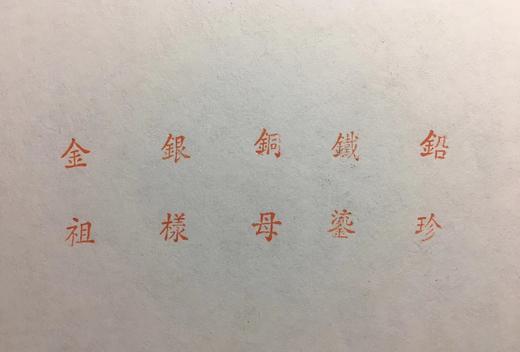 金 銀 銅 鐵 鉛
祖 樣 母 鎏 珍